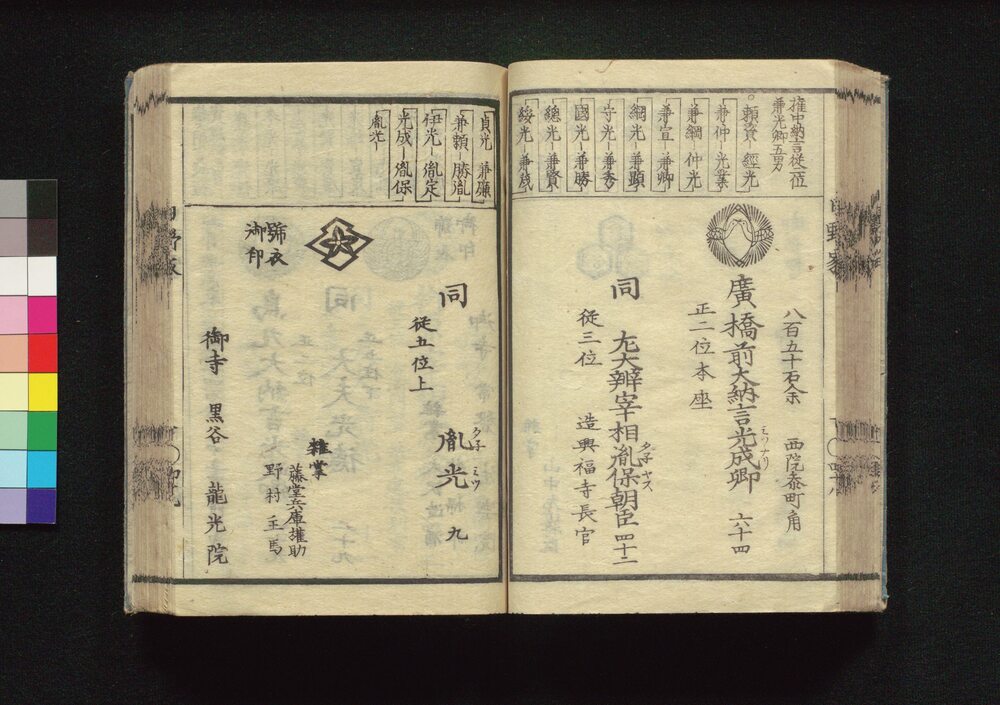 権中納言従二位
兼光卿五男
頼資─經光
兼仲─光業
兼綱─仲光
兼宣─兼卿
綱光─兼顕
守光─兼秀
國光─兼勝
總光─兼賢
綏光─兼茂
八百五十石余 西院参町角
廣橋前大納言光成卿 六十四
ミツナリ
正二位本座
同 左大辨宰相胤保朝臣 四十二
タネヤス
従三位 造興福寺長官
貞光 兼廉
兼頼─勝胤
伊光─胤定
光成─胤保
胤光─
同 胤光 九
タネミツ
従五位上
號衣
御印
雑掌
藤堂兵庫権助
野村主馬
御寺 黒谷 龍光院
日野家